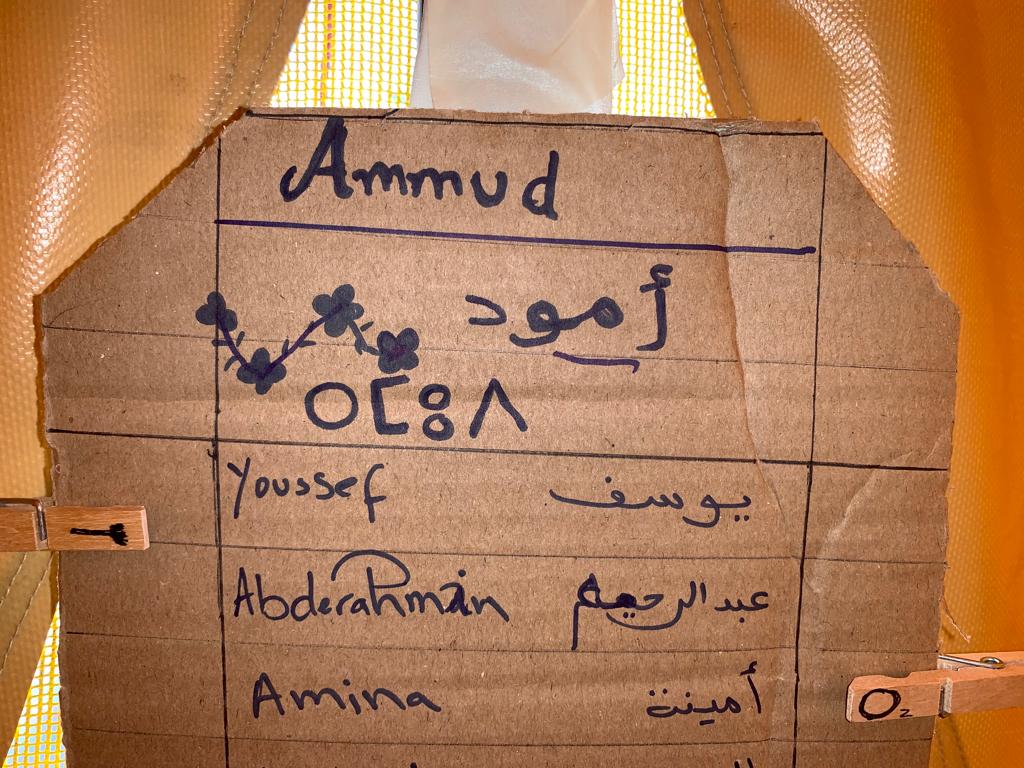 Ammud
أمود
ⴰⵎⵓⴷ
Youssef يوسف
Abderahman عبد الرحيم
Amina أمينة
O₂